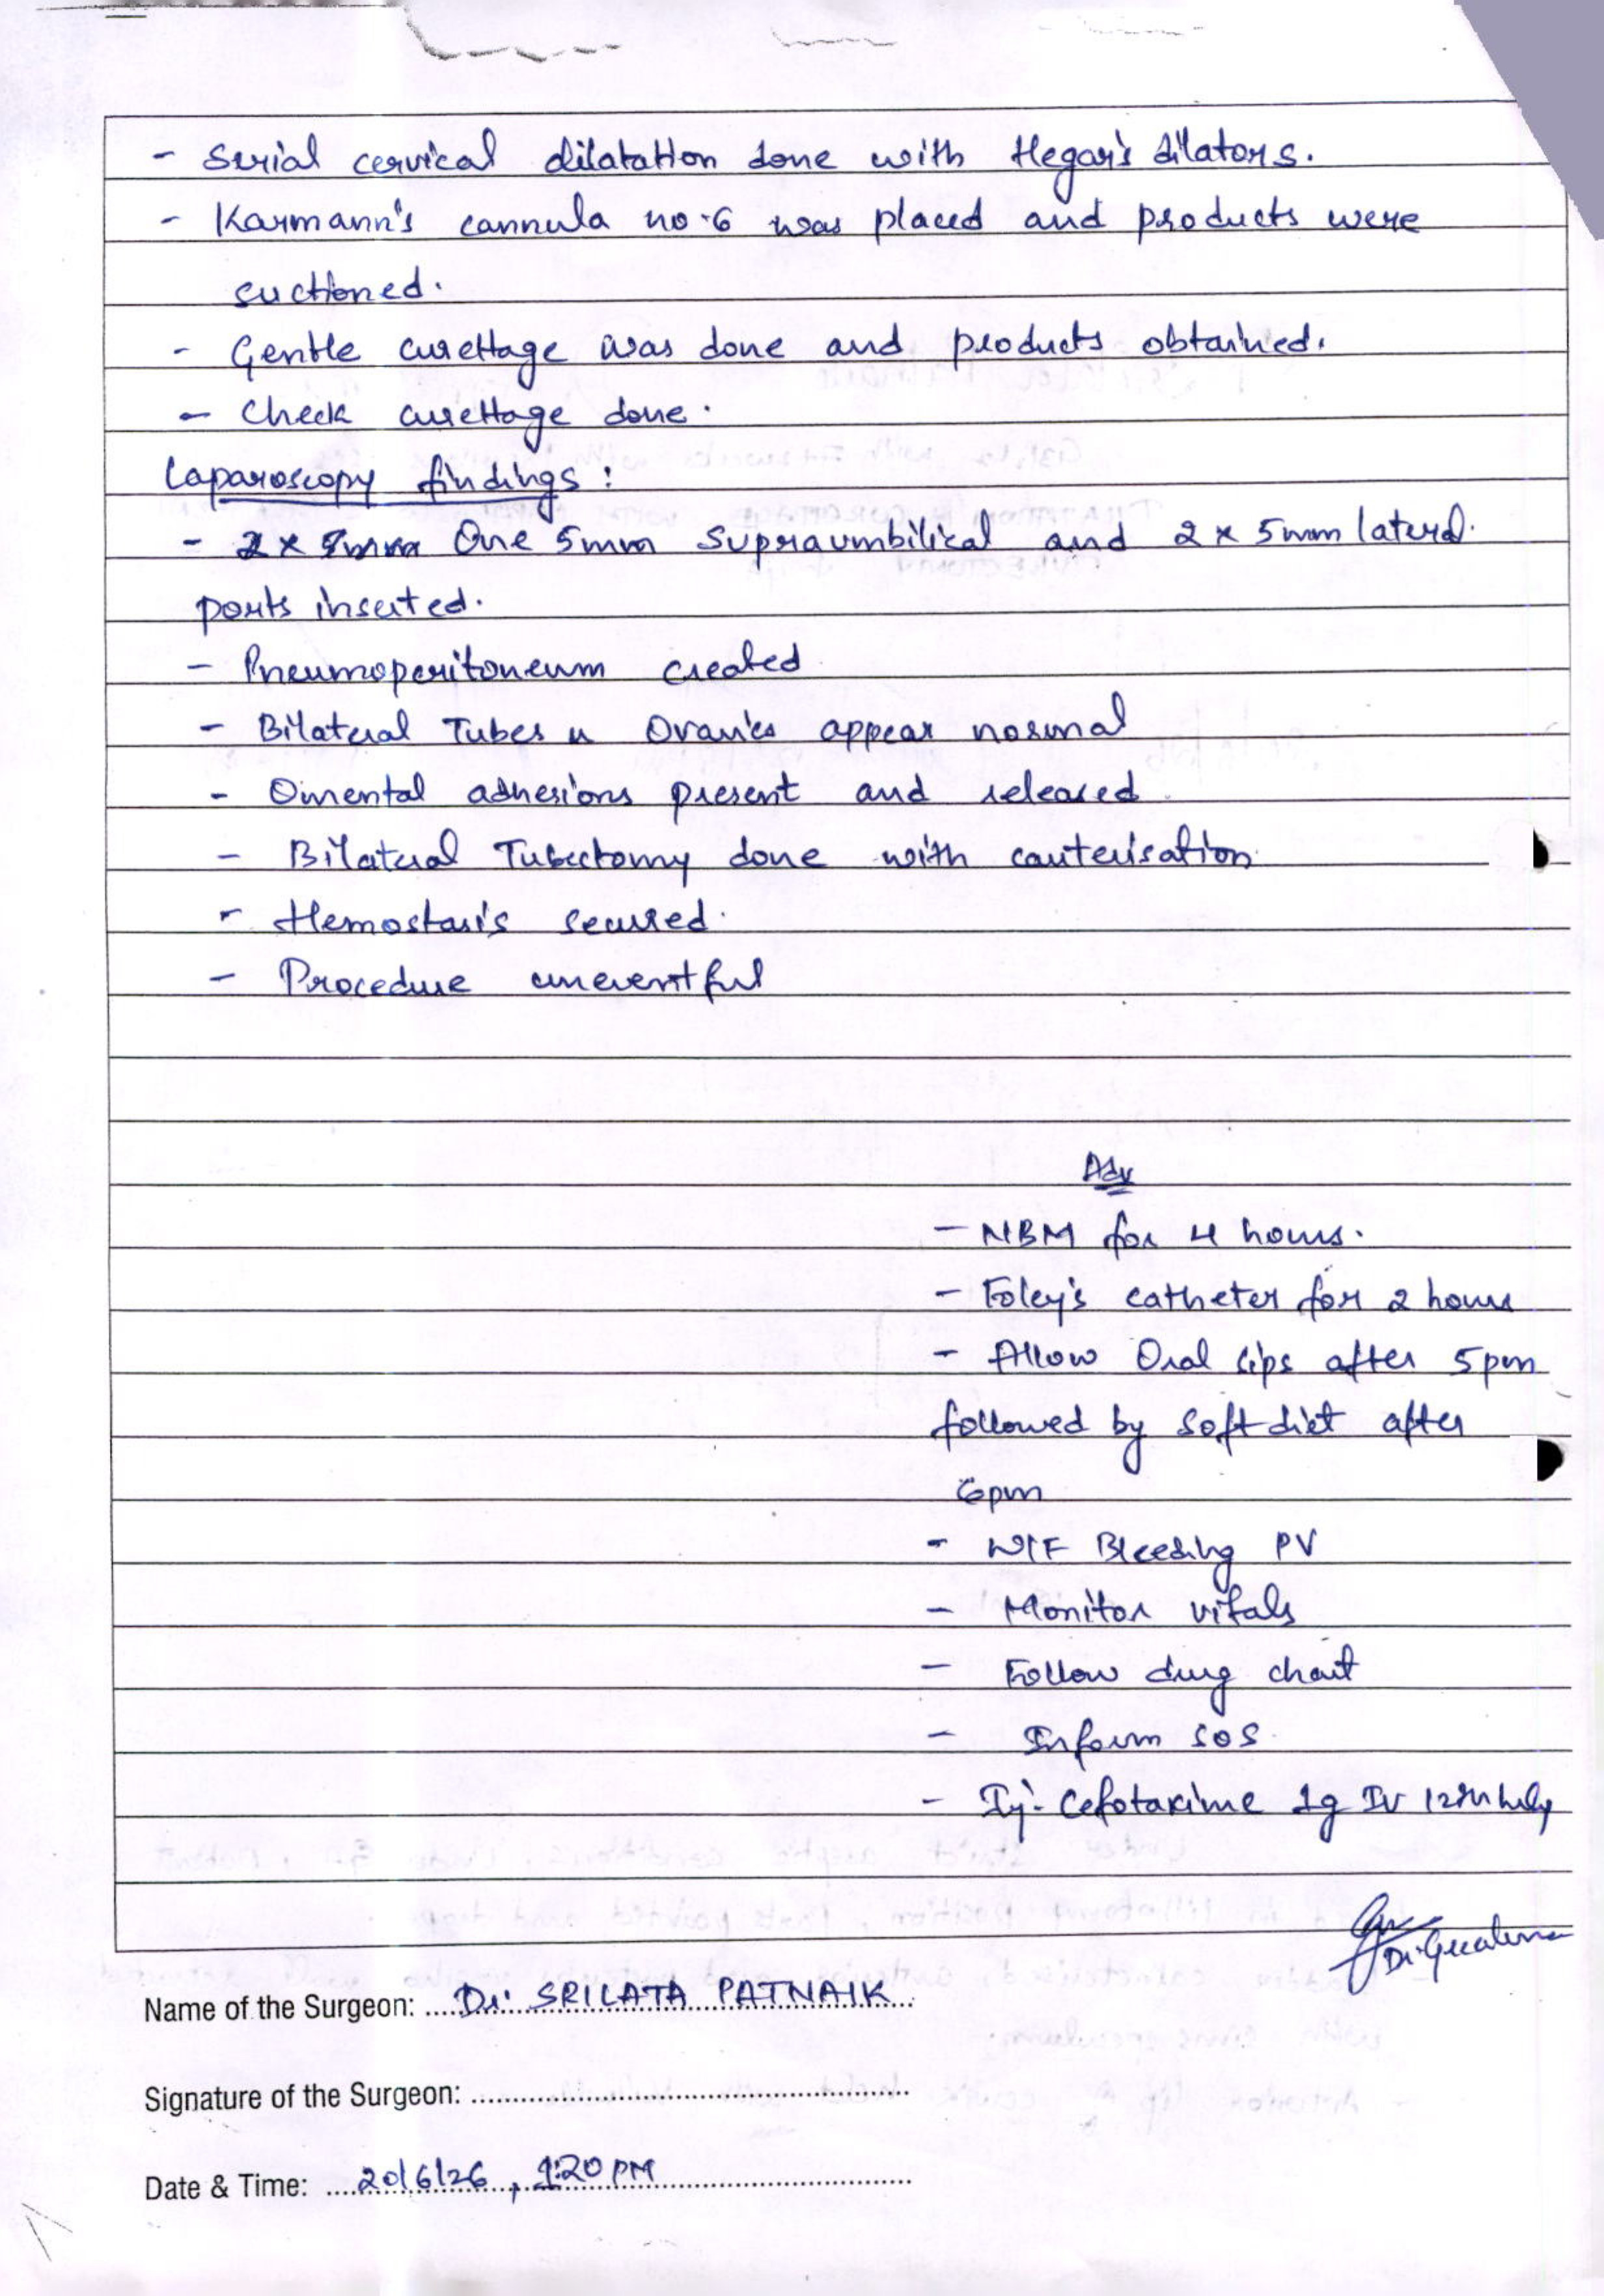 - Serial cervical dilatation done with Hegar's dilators.
- Karmann's cannula no.6 was placed and products were
suctioned.
- Gentle curettage was done and products obtained.
- Check curettage done.
Laparoscopy findings:
- 2 x 5mm One 5mm Supraumbilical and 2 x 5mm lateral
ports inserted.
- Pneumoperitoneum created
- Bilateral Tubes n Ovaries appear normal
- Omental adhesions present and released
- Bilateral Tubectomy done with cauterisation
- Hemostasis secured.
- Procedure uneventful
Adv
- NBM for 4 hours.
- Foley's catheter for 2 hours
- Allow Oral sips after 5pm
followed by soft diet after
6pm
- W/F Bleeding PV
- Monitor vitals
- Follow drug chart
- Inform SOS
- Inj. Cefotaxime 1g IV 12th hrly
Name of the Surgeon: Dr. SRILATA PATNAIK
Signature of the Surgeon:
Date & Time: 20/6/26, 1:20 PM